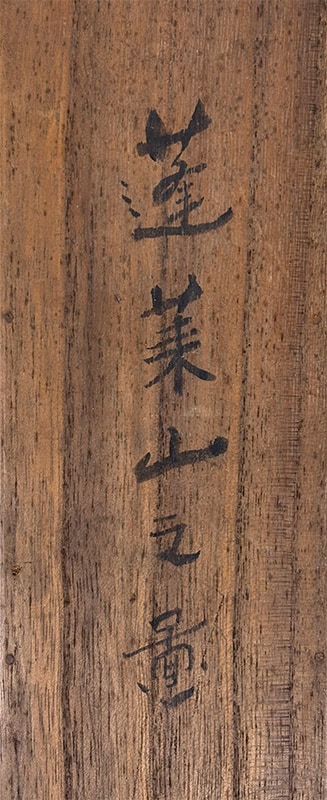 蓬莱山之圖